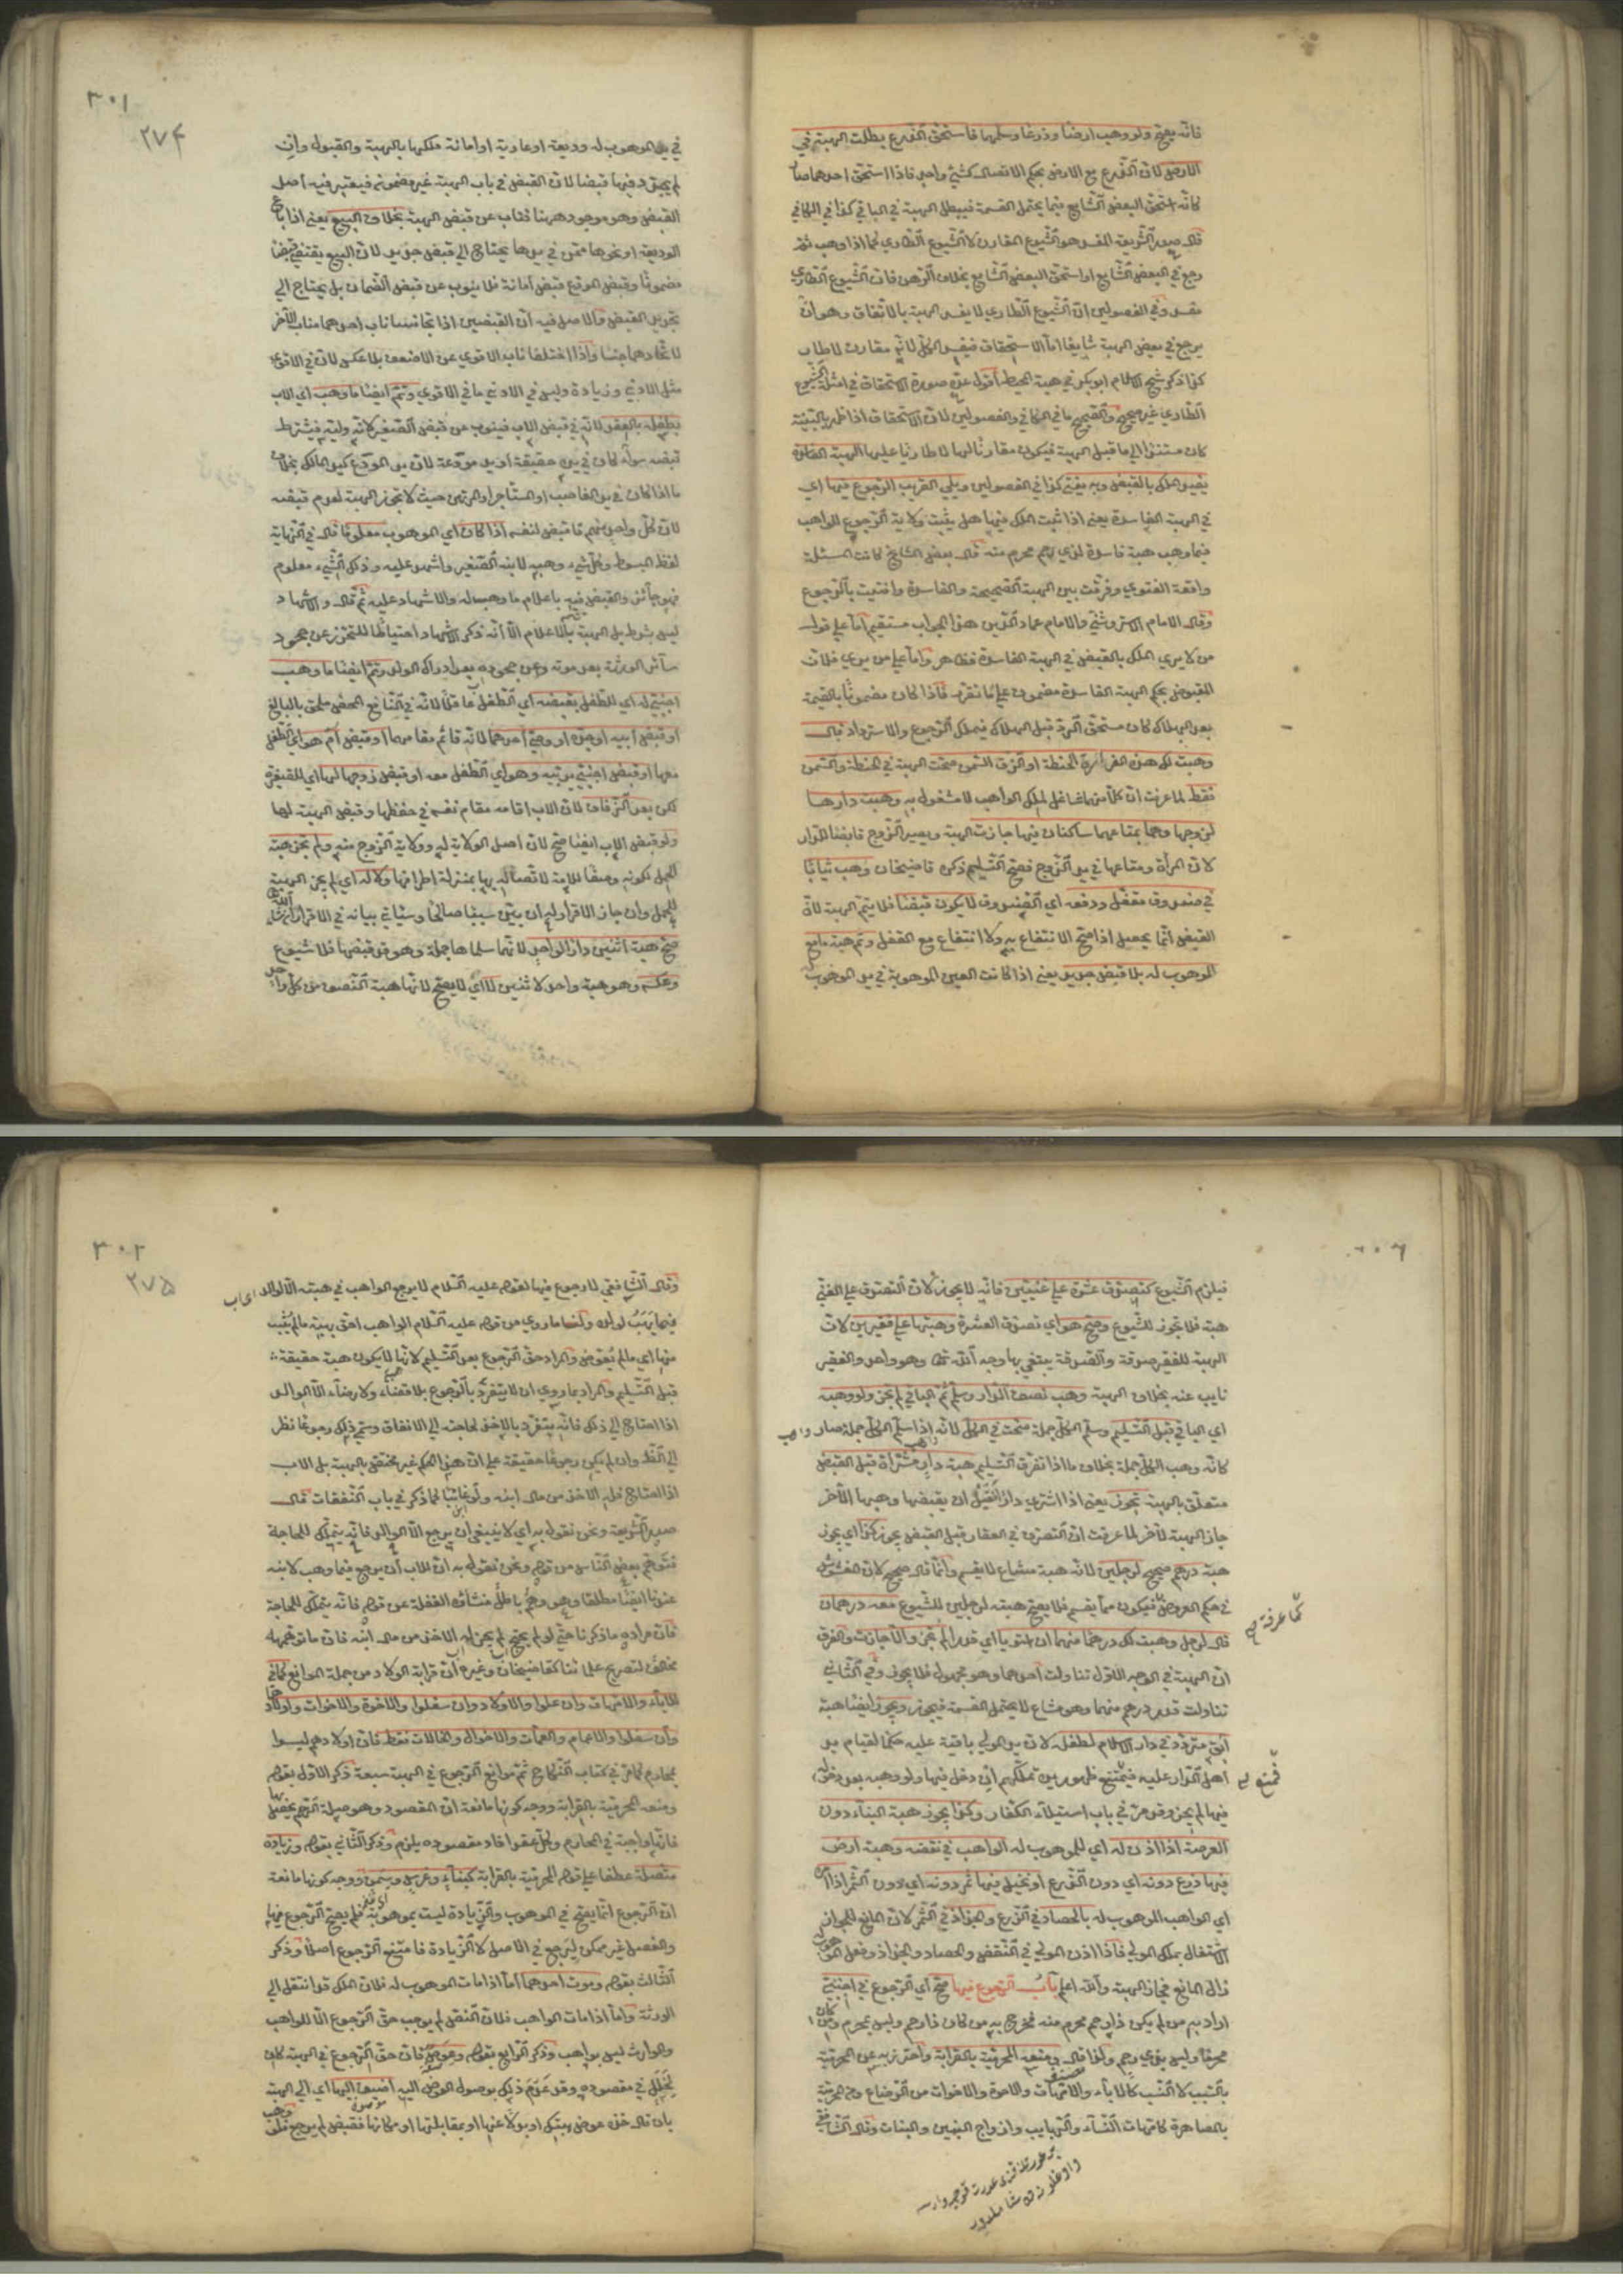 فانه يصح ولو وهب ارضا وزرعا وسلمها فاستحق الزرع بطلت الهبة في
الارض لان الزرع مع الارض بحكم الاتصال كشيء واحد فاذا استحق احدهما صار
كانه استحق البعض الشايع فيما يحتمل القسمة فيبطل الهبة في الباقي كذا في الكافي
قال صدر الشريعة المفسد هو الشيوع المقارن لا الشيوع الطاري كما اذا وهب ثم
رجع في البعض الشايع او استحق البعض الشايع بخلاف الرهن فان الشيوع الطاري
مفسد وفي الفصولين ان الشيوع الطاري لا يفسد الهبة بالاتفاق وهو ان
يرجع في بعض الهبة شايعا اما الاستحقاق فيفسد الكل لانه مقارن لا طار
كذا ذكر شيخ الاسلام ابو بكر في هبة المحيط اقول عده صورة الاستحقاق في امثلة الشيوع
الطاري غير صحيح والصحيح ما في الكافي والفصولين لان الاستحقاق اذا ظهر بالبينة
كان مستندا الى ما قبل الهبة فيكون مقارنا لها لا طاريا عليها الهبة الفاسدة
يفيد الملك بالقبض وبه يفتى كذا في الفصولين ويلي القريب الرجوع فيها اي
في الهبة الفاسدة يعني اذا ثبت الملك فيها هل يثبت ولاية الرجوع للواهب
فيما وهب هبة فاسدة لذي رحم محرم منه قال بعض المشايخ كانت المسئلة
واقعة الفتوى وفرقت بين الهبة الصحيحة والفاسدة وافتيت بالرجوع
وقال الامام الاستروشني والامام عماد الدين هذا الجواب مستقيم اما على قول
من لا يرى الملك بالقبض في الهبة الفاسدة فظاهر واما على من يرى فلان
المقبوض بحكم الهبة الفاسدة مضمون على ما تقرر فاذا كان مضمونا بالقيمة
بعد الهلاك كان مستحق الرد قبل الهلاك فيملك الرجوع والاسترداد قال
وهبت لك هذه الغرارة الحنطة او الزق السمن صحت الهبة في الحنطة والسمن
فقط لما عرفت ان كلا منهما شاغل لملك الواهب لا مشغول به وهبت دارها
لزوجها وهما بمتاعهما ساكنان فيها جازت الهبة ويصير الزوج قابضا للدار
لان المرأة ومتاعها في يد الزوج فصح التسليم ذكره قاضيخان وهب ثيابا
في صندوق مقفل ودفعه اي الصندوق لا يكون قبضا فلا يتم الهبة لان
القبض انما يحصل اذا صح الانتفاع به ولا انتفاع مع القفل وتم هبة ما مع
الموهوب له بلا قبض جديد يعني اذا كانت العين الموهوبة في يد الموهوب له
٣٠١
٢٧۴
في يد الموهوب له وديعة او عارية او امانة ملكها بالهبة والقبول وان
لم يجدد فيها قبضا لان القبض في باب الهبة غير مضمون فيعتبر فيه اصل
القبض وهو موجود ههنا فناب عن قبض الهبة بخلاف البيع يعني اذا باع
الوديعة او نحوها ممن في يدها يحتاج الى قبض جديد لان البيع يقتضي قبضا
مضمونا وقبض المودع قبض امانة فلا ينوب عن قبض الضمان بل يحتاج الى
تجديد القبض والاصل فيه ان القبضين اذا تجانسا ناب احدهما مناب الآخر
لاتحادهما جنسا واذا اختلفا ناب الاقوى عن الاضعف بلا عكس لان في الاقوى
مثل الادنى وزيادة وليس في الادنى ما في الاقوى وتم ايضا ما وهب اي الاب
لطفله بالعقد لانه في قبض الاب فينوب عن قبض الصغير لانه وليه فيشترط
قبضه سواء كان في يده حقيقة او يد مودعه لان يد المودع كيد المالك بخلاف
ما اذا كان في يد الغاصب او المستأجر او المرتهن حيث لا تجوز الهبة لعدم قبضه
لان كل واحد منهم قابض لنفسه اذا كان اي الموهوب معلوما قال في النهاية
لفظ المبسوط وكل شيء وهبه لابنه الصغير واشهد عليه وذلك الشيء معلوم
فهو جائز والقبض فيه باعلام ما وهبه له والاشهاد عليه ثم قال والاشهاد
ليس بشرط بل الهبة تتم بالاعلام الا انه ذكر الاشهاد احتياطا للتحرز عن جحود
سائر الورثة بعد موته وعن جحوده بعد ادراك الولد وتم ايضا ما وهب
اجنبي له اي للطفل بقبضه اي الطفل عاقلا لانه في النافع المحض ملحق بالبالغ
او قبض ابيه او جده او وصي احدهما لانه قائم مقامهما او قبض ام هو اي الطفل
معها او قبض اجنبي يربيه وهو اي الطفل معه او قبض زوجها لها اي للصغيرة
لكن بعد الزفاف لان الاب اقامه مقام نفسه في حفظها وقبض الهبة لها
ولو قبض الاب ايضا صح لان اصل الولاية له وولاية الزوج منه ولم تجز هبة
الحمل لكونه وصفا للامة لاتصاله بها بمنزلة اطرافها ولا له اي لم يجز الهبة
للحمل وان جاز الاقرار له ان بين سببا صالحا وسيأتي بيانه في الاقرار ان شاء الله
صح هبة اثنين دارا لواحد لانهما سلماها جملة وهو قد قبضها فلا شيوع
وعكسه وهو هبة واحد لاثنين لا اي لا يصح لانها هبة النصف من كل واحد
فيلزم الشيوع كتصدق عشرة على غنيين فانه لا يجوز لان التصدق على الغني
هبة فلا تجوز للشيوع وصح هو اي تصدق العشرة وهبتها على فقيرين لان
الهبة للفقير صدقة والصدقة يبتغى بها وجه الله تعالى وهو واحد والفقير
نايب عنه بخلاف الهبة وهب نصف الدار وسلم ثم الباقي لم يجز ولو وهبه
اي الباقي قبل التسليم وسلم الكل جملة صحت في الكل لانه اذا سلم الكل جملة صار واهب
كانه وهب الكل جملة بخلاف ما اذا تفرق التسليم هبة دار مشتراة قبل القبض
متعلق بالهبة تجوز يعني اذا اشترى دارا فقبل ان يقبضها وهبها الآخر
جاز الهبة لآخر لما عرفت ان التصرف في العقار قبل القبض يجوز كذا اي يجوز
هبة درهم صحيح لرجلين لانه هبة مشاع لا يقسم وانما قال صحيح لان المغشوش
في حكم العروض فيكون مما يقسم فلا يصح هبته لرجلين للشيوع معه درهمان
كما عرفته صح
قال لرجل وهبت لك درهما منهما ان استويا اي قدرا لم يجز والا جازت والفرق
ان الهبة في الوجه الاول تناولت احدهما وهو مجهول فلا يجوز وفي الثاني
تناولت قدر درهم منهما وهو مشاع لا يحتمل القسمة فيجوز ويجوز ايضا هبة
آبق متردد في دار الاسلام لطفله لان يد المولى باقية عليه حكما لقيام يد
اهل الدار عليه فيمتنع ظهور يده تملكهم اي دخل فيها ولو وهبه بعد دخوله
فيها لم يجز وقد مر في باب استيلاء الكفار وكذا يجوز هبة البناء دون
العرصة اذا اذن له اي للموهوب له الواهب في نقضه وهبة ارض
فيها زرع دونه اي دون الزرع او نخيل فيها ثمر دونه اي دون الثمر اذا امره
اي الواهب الموهوب له بالحصاد في الزرع والجذاذ في الثمر لان المانع للجواز
الاشتغال بملك المولى فاذا اذن المولى في النقض والحصاد والجذاذ وفعل الموهوب له
زال المانع فجاز الهبة والله اعلم باب الرجوع فيها صح اي الرجوع في اجنبي
اراد به من لم يكن ذا رحم محرم منه فخرج به من كان ذا رحم وليس بمحرم ومن كان
محرما وليس بذي رحم ولذا قال ومنعه المحرمية بالقرابة واحترز به عن المحرمية
بالسبب لا النسب كالاباء والامهات والاخوة والاخوات من الرضاع وعن المحرمية
بالمصاهرة كامهات النساء والربايب وازواج البنين والبنات وقال الشافعي
٣٠٢
٢٧۵
وقال الشافعي لا رجوع فيها لقوله عليه السلام لا يرجع الواهب في هبته الا الوالد
فيما يهب لولده ولنا ما روي من قوله عليه السلام الواهب احق بهبته ما لم يثب
منها اي ما لم يعوض والمراد حق الرجوع بعد التسليم لانها لا يكون هبة حقيقة
قبل التسليم والمراد بما روي ان لا يتفرد بالرجوع بلا قضاء ولا رضاء الا الوالد
اذا احتاج الى ذلك فانه يتفرد بالاخذ لحاجته الى الانفاق وسمي ذلك رجوعا نظر
الى الظاهر وان لم يكن رجوعا حقيقة على ان هذا الحكم غير مختص بالهبة بل الاب
اذا احتاج فله الاخذ من مال ابنه ولو غائبا كما ذكر في باب النفقات قال
صدر الشريعة ونحن نقول به اي لا ينبغي ان يرجع الا الوالد فانه يتملك للحاجة
فتوهم بعض الناس من قوله ونحن نقول به ان للاب ان يرجع فيما وهب لابنه
عندنا ايضا مطلقا وهو وهم باطل منشأه الغفلة عن قوله فانه يتملك للحاجة
فان مراده ما ذكرنا حتى لو لم يحتج لم يجز له الاخذ من مال ابنه فان ما توهموه
مخالف لتصريح علمائنا كقاضيخان وغيره ان قرابة الولاد من جملة الموانع كما في
الاباء والامهات وان علوا والاولاد وان سفلوا والاخوة والاخوات واولادهما
وان سفلوا والاعمام والعمات والاخوال والخالات فقط فان اولادهم ليسوا
بمحارم كما مر في كتاب النكاح ثم موانع الرجوع في الهبة سبعة ذكر الاول بقوله
ومنعه المحرمية بالقرابة ووجه كونها مانعة ان المقصود وهو صلة الرحم يحصل بها
فانها واجبة في المحارم وكل عقد افاد مقصوده يلزم وذكر الثاني بقوله وزيادة
متصلة عطفا على قوله المحرمية بالقرابة كبناء وغرس وسمن ووجه كونها مانعة
ان الرجوع انما يصح في الموهوب والزيادة ليست بموهوبة فلم يصح الرجوع فيها
والفصل غير ممكن ليرجع في الاصل لا الزيادة فامتنع الرجوع اصلا وذكر
الثالث بقوله وموت احدهما اما اذا مات الموهوب له فلان الملك قد انتقل الى
الورثة واما اذا مات الواهب فلان النص لم يوجب حق الرجوع الا للواهب
والوارث ليس بواهب وذكر الرابع بقوله وعوض فان حق الرجوع في الهبة كان
لخلل في مقصوده وقد عدم ذلك بوصول العوض اليه اضيف اليها اي الى الهبة
بان قال خذه عوض هبتك او بدلا عنها او بمقابلتها او مكانها فقبض لم يرجع فلو وهب